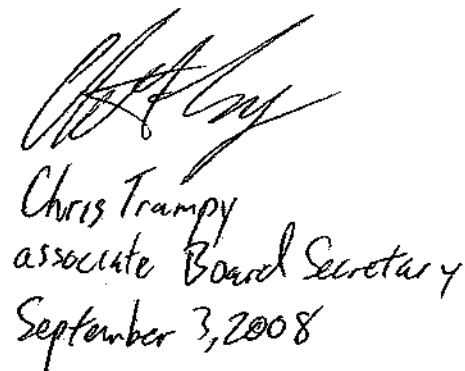 Chris Trampy
associate Board Secretary
September 3, 2008